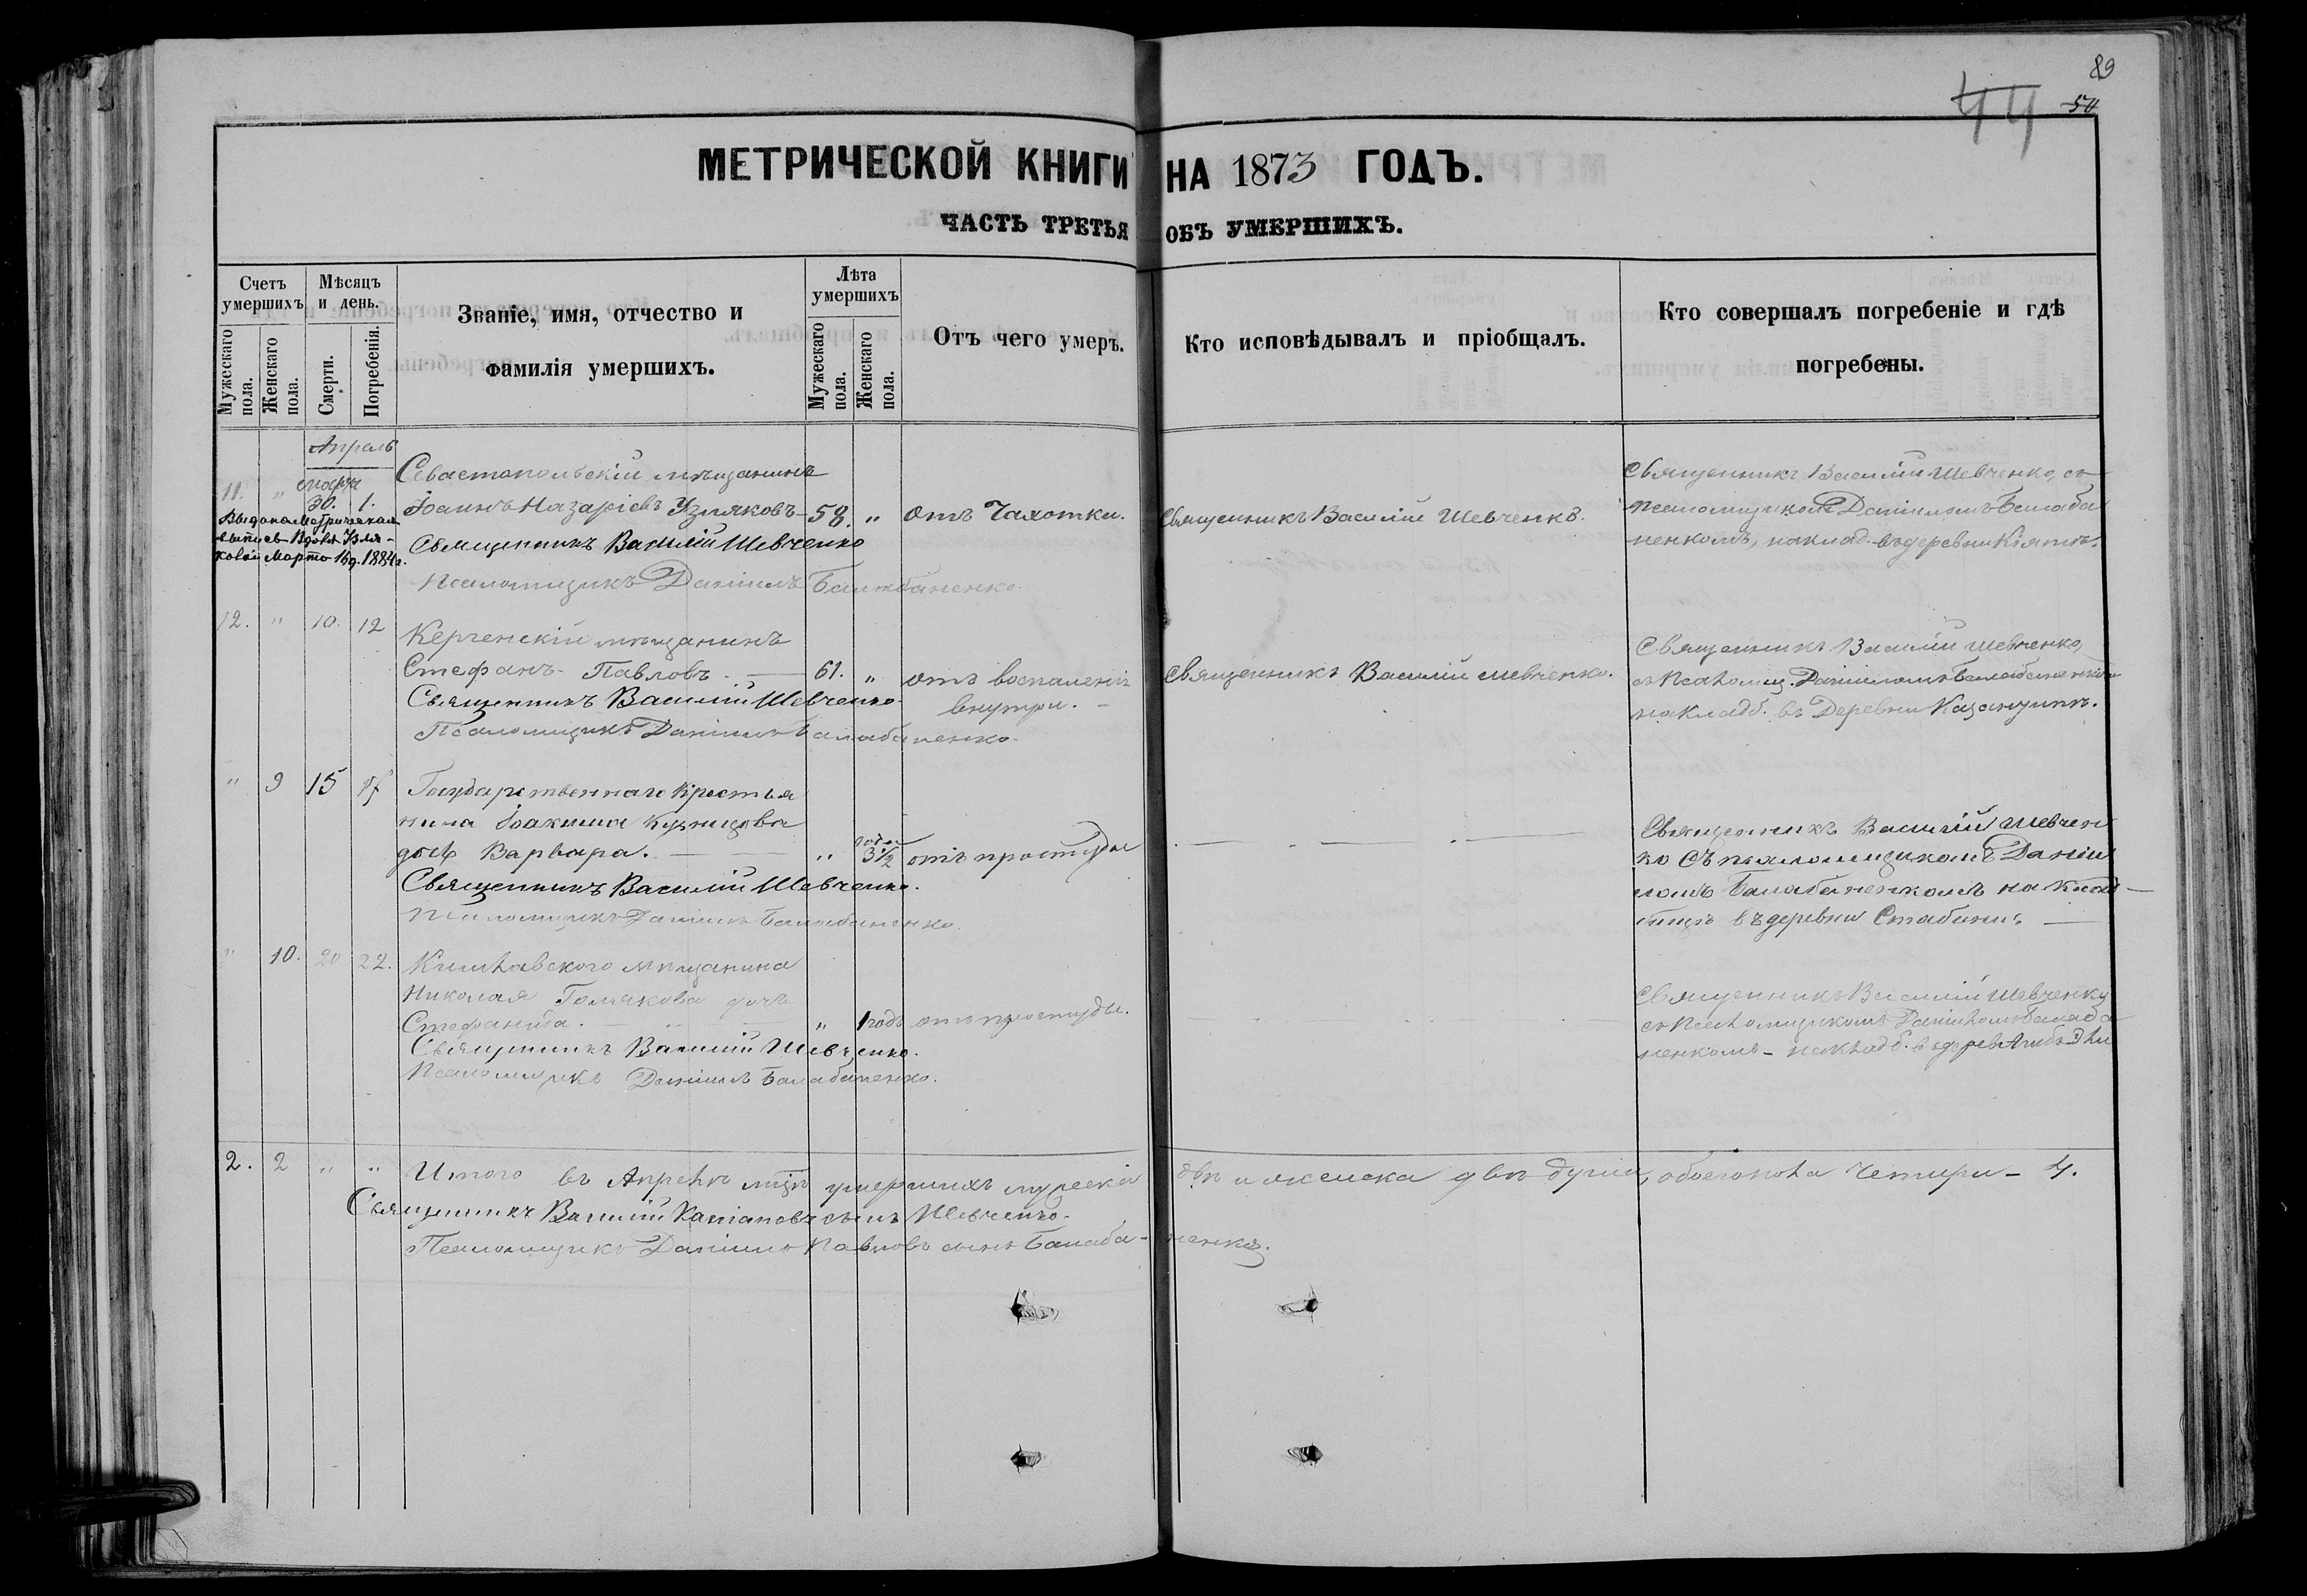 89
44 50
МЕТРИЧЕСКОЙ КНИГИ НА 1873 ГОДЪ.
ЧАСТЬ ТРЕТЬЯ ОБЪ УМЕРШИХЪ.
Счетъ умершихъ.
Мужескаго пола.
Женскаго пола.
Мѣсяцъ и день.
Смерти.
Погребенія.
Званіе, имя, отчество и
фамилія умершихъ.
Лѣта умершихъ
Мужескаго пола.
Женскаго пола.
Отъ чего умеръ.
Кто исповѣдывалъ и пріобщалъ.
Кто совершалъ погребеніе и гдѣ
погребены.
Апрель
11. " Марта 30. 1.
Выдана Метрическая
выпись Вдовѣ Узля-
ковой Марта 1884 г.
Севастопольскій мѣщанинъ
Іоаннъ Назаріевъ Узляковъ 58. " отъ Чахотки.
Священникъ Василій Шевченко
Псаломщикъ Даніилъ Балабаненко.
Священникъ Василій Шевченко.
Священникъ Василій Шевченко, съ
псаломщикомъ Даніиломъ Балаба
ненкомъ, на клад. въ деревни Кіятъ.
12. " 10. 12
Керченскій мѣщанинъ
Стефанъ Павловъ. 61. " отъ воспаленія
внутри.
Священникъ Василій Шевченко
Псаломщикъ Даніилъ Балабаненко.
Священникъ Василій Шевченко.
Священникъ Василій Шевченко,
съ Псаломщ. Даніиломъ Балабаненкомъ
на кладб. въ Деревни
" 9 15 17
Государственнаго крестья
нина Іоакима Кузнецова
дочь Варвара. " года 3½ отъ простуды
Священникъ Василій Шевченко.
Псаломщикъ Даніилъ Балабаненко.
Священникъ Василій Шевчен
ко съ псаломщикомъ Даніи
ломъ Балабаненкомъ на клад
бищѣ въ деревни
" 10. 20 22.
мѣщанина
Николая дочь
Стефанида. " 1 годъ отъ простуды.
Священникъ Василій Шевченко.
Псаломщикъ Даніилъ Балабаненко.
Священникъ Василій Шевченко
съ Псаломщикомъ Даніиломъ Балаба
ненкомъ - на кладб. въ дерев.
2. 2 " " Итого въ Апрелѣ мѣцѣ умершихъ мужеска двѣ и женска двѣ души, обоего пола Четыри - 4.
Священникъ Василій Касіановъ сынъ Шевченко.
Псаломщикъ Даніилъ Павловъ сынъ Балаба-ненко.